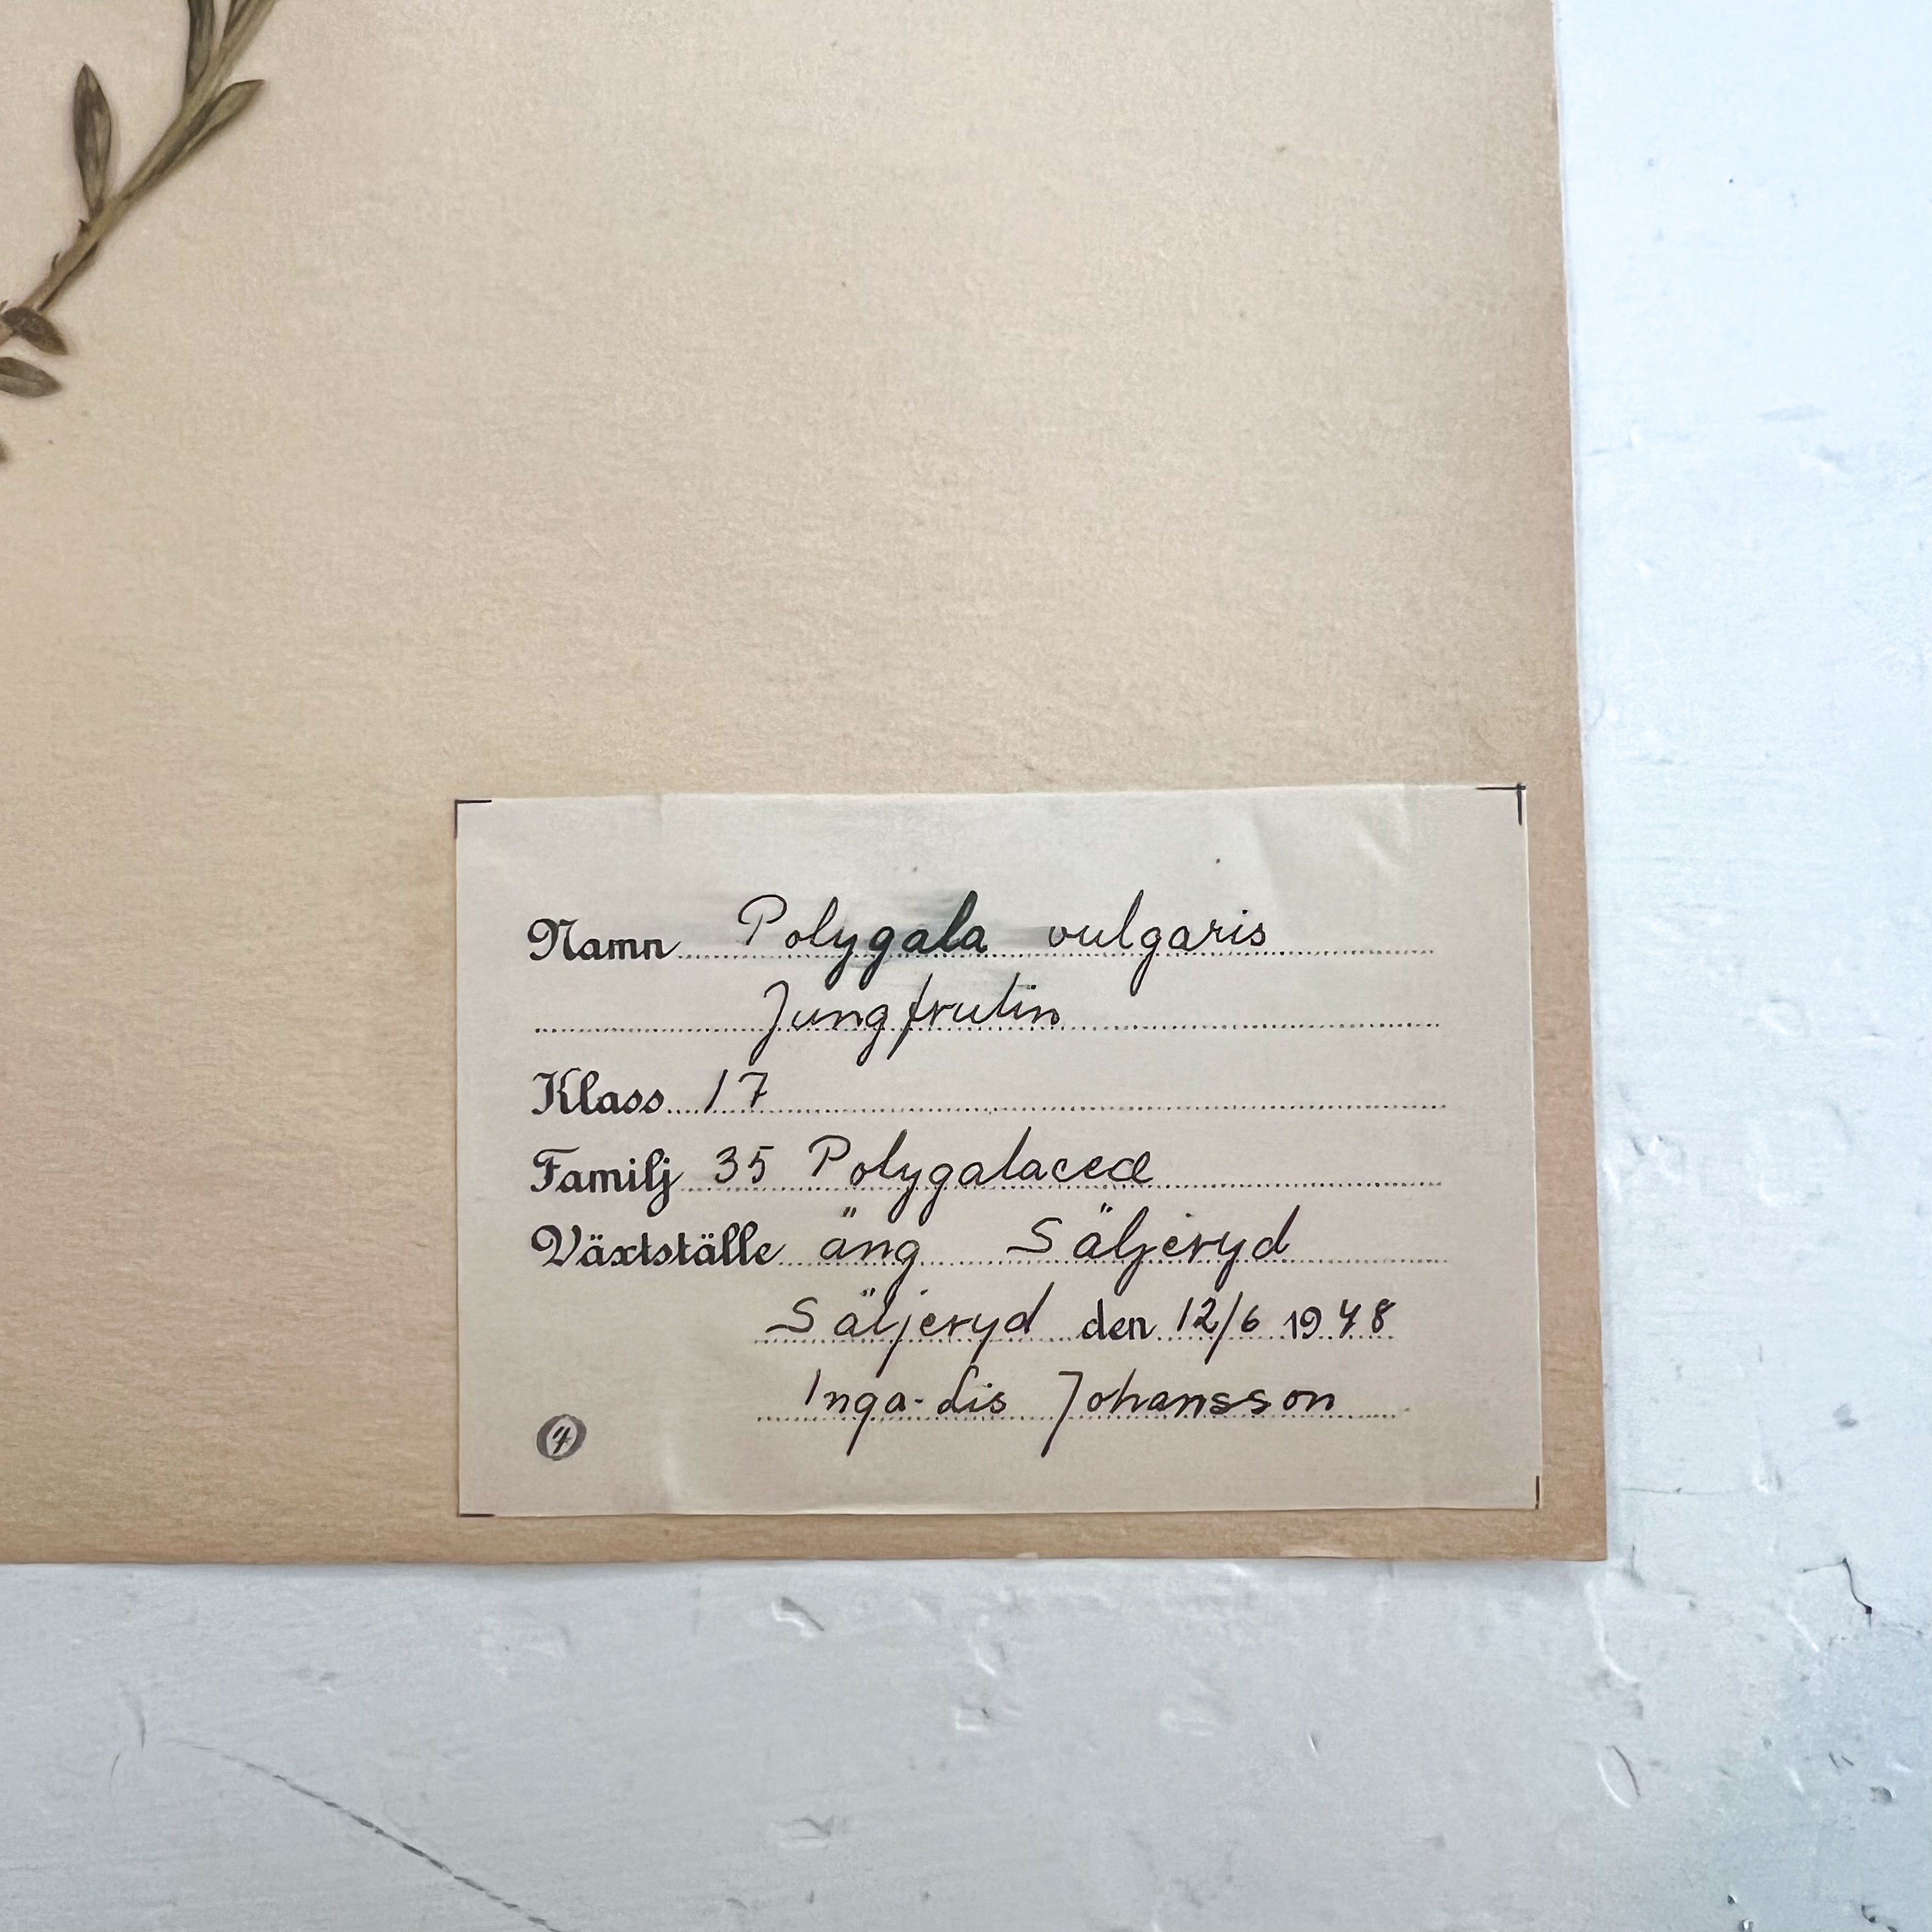 Namn Polygala vulgaris
Jungfrulin
Klass 17
Familj 35 Polygalaceæ
Växtställe äng Säljeryd
Säljeryd den 12/6 1948
Inga-Lis Johansson
4